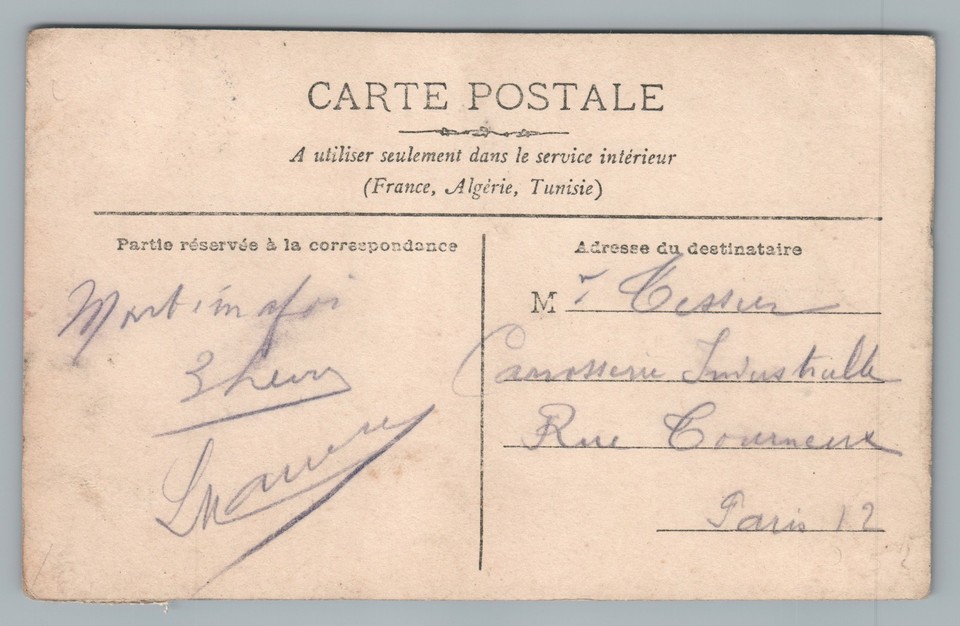 CARTE POSTALE
A utiliser seulement dans le service intérieur
(France, Algérie, Tunisie)
Partie réservée à la correspondance
3 heures
Adresse du destinataire
Mr Tessier
Carrosserie Industrielle
Rue Tourneux
Paris 12